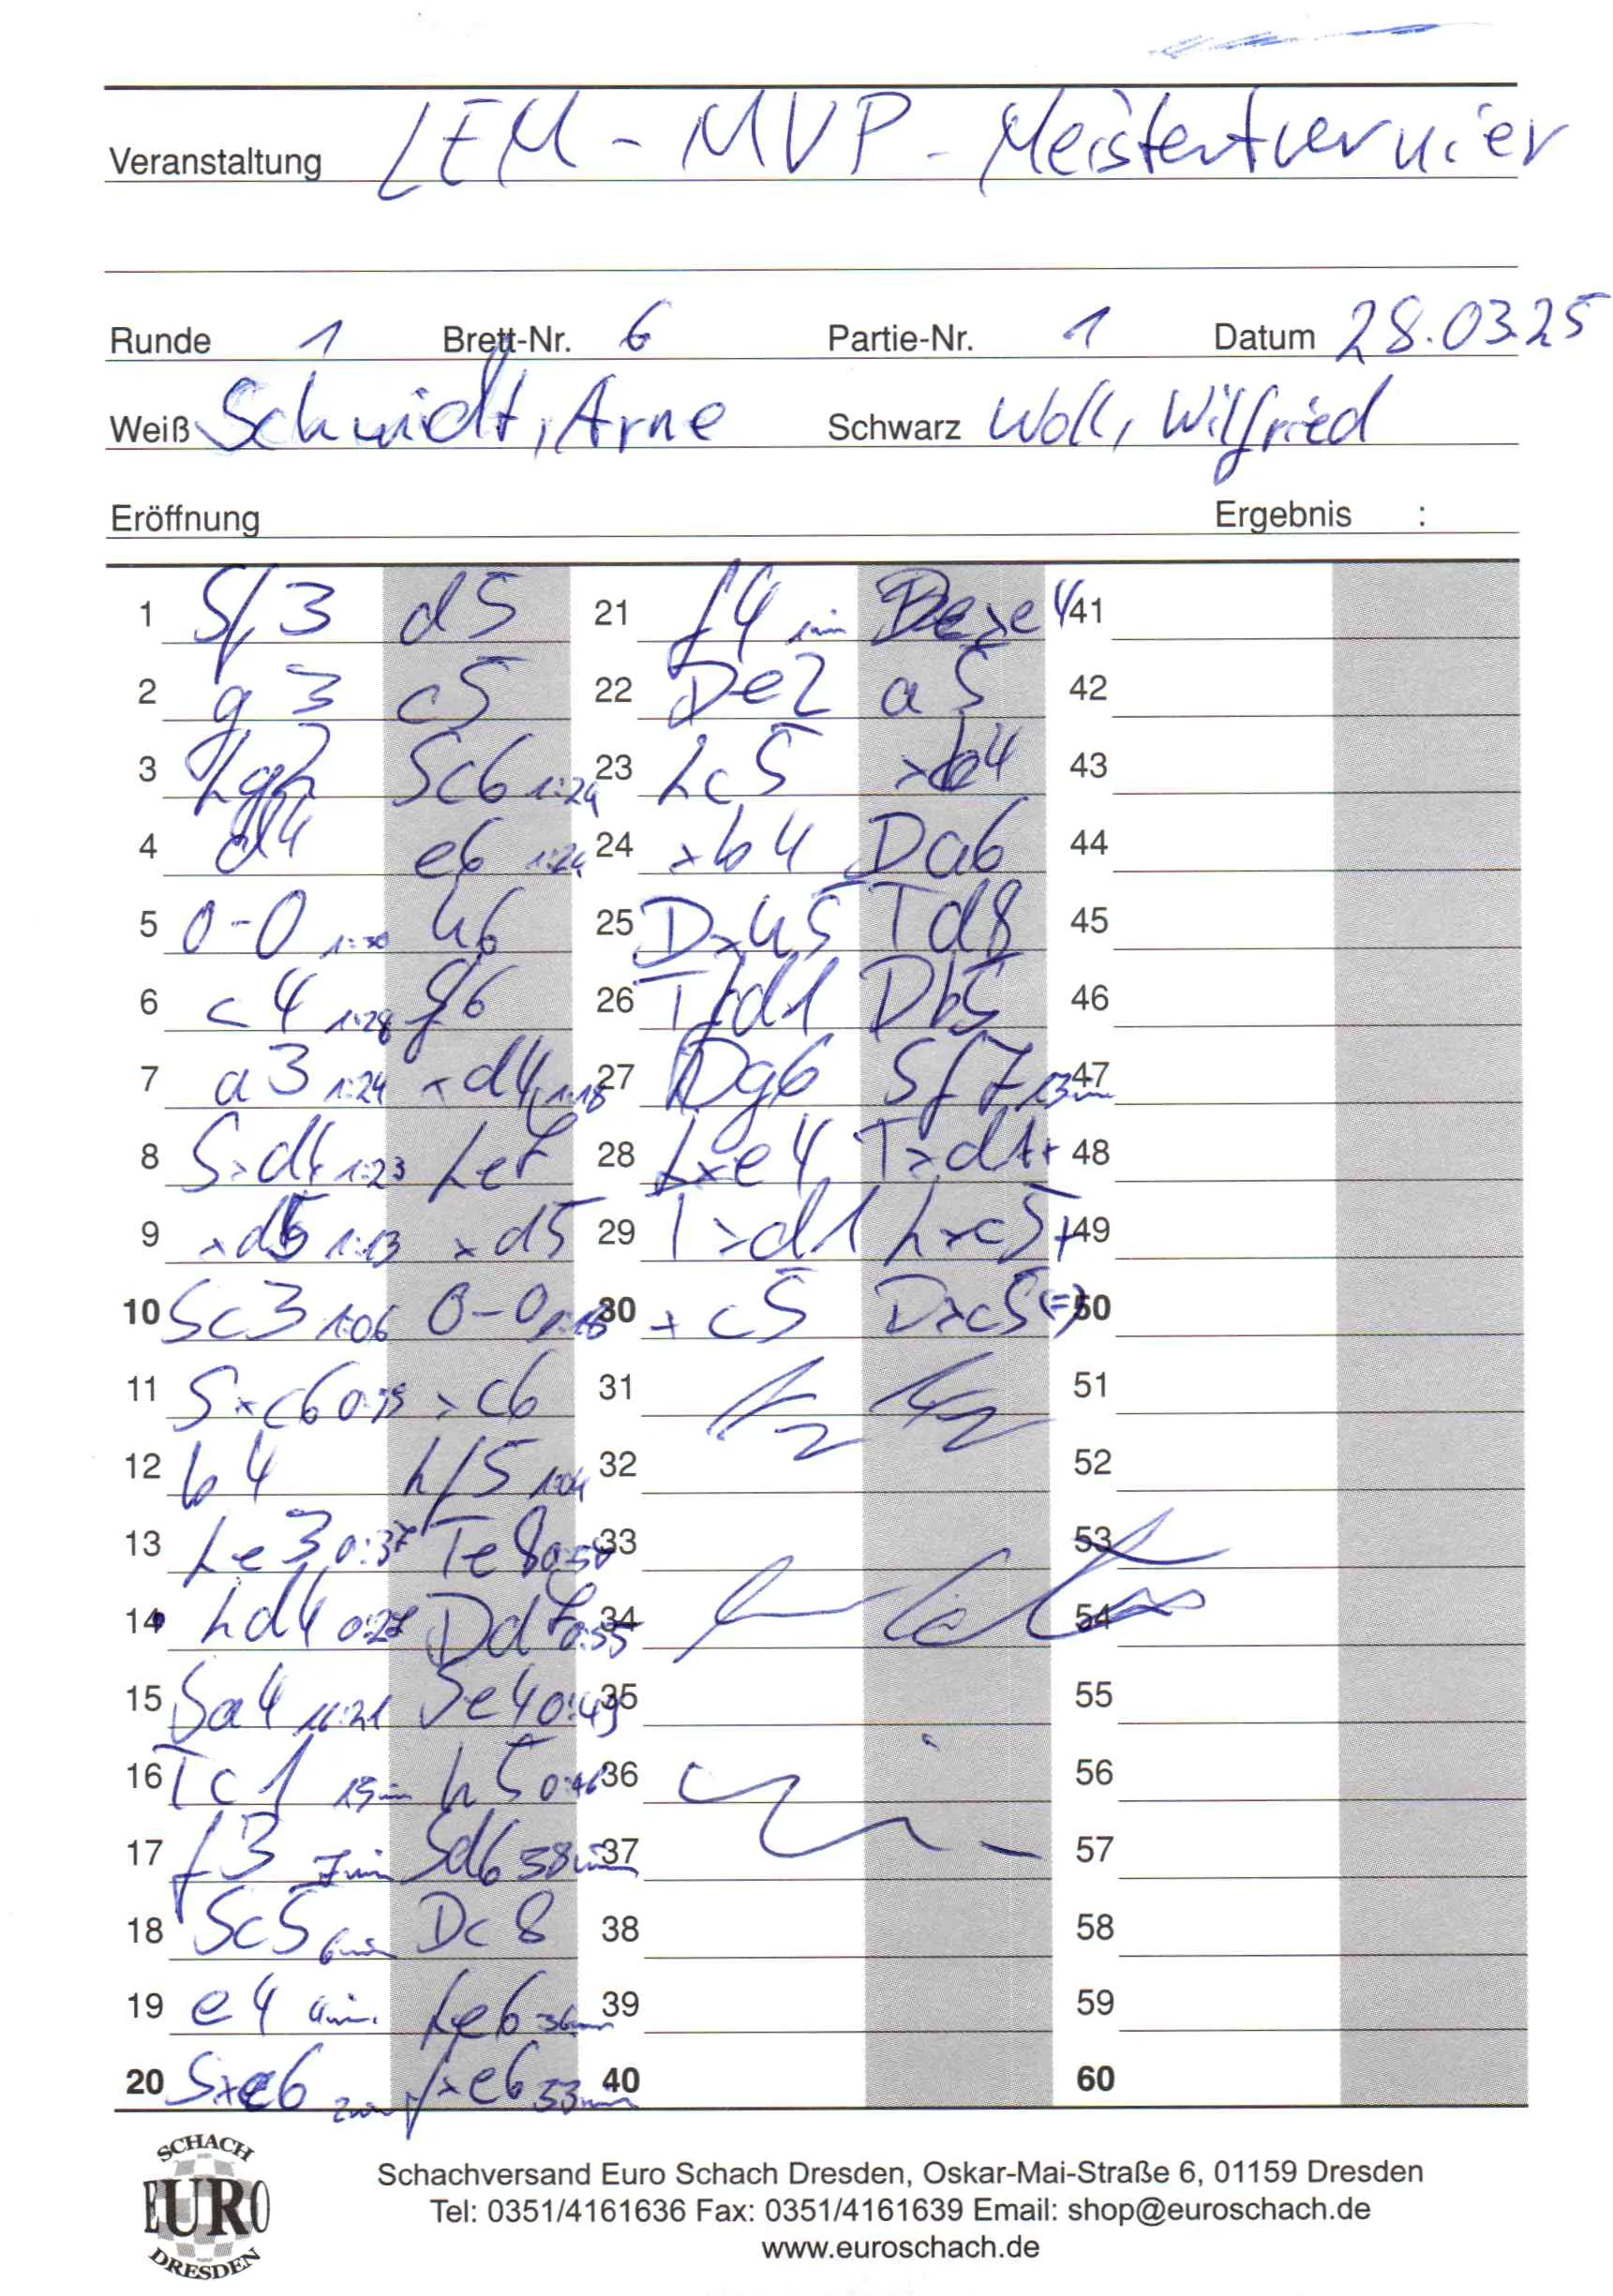 Veranstaltung LEM - MVP - Meisterturnier
Runde 1 Brett-Nr. 6 Partie-Nr. 1 Datum 28.03.25
Weiß Schmidt, Arne Schwarz Woll, Wilfried
Eröffnung Ergebnis :
1 Sf3 d5
2 g3 c5
3 Lg2 Sc6 1:29
4 d4 e6
5 0-0 1:30 h6
6 c4 1:28 Sf6
7 a3 1:24 xd4 1:18
8 Sxd4 1:23 Le7
9 xd5 1:13 xd5
10 Sc3 1:06 0-0 1:18
11 Sxc6 xc6
12 b4 Lf5 1:04
13 Le3 0:37 Te8
14 Ld4 0:27 Dd7 0:55
15 Sa4 Se4 0:49
16 Tc1 15min h5 0:46
17 f3 7min Sd6 38min
18 Sc5 6min Dc8
19 e4 4min Le6 36min
20 Sxe6 2min fxe6 33min
21 f4 1min xe4
22 De2 a5
23 Lc5 xb4
24 xb4 Da6
25 Dxh5 Td8
26 Tfd1 Db5
27 Dg6 Sf7 13min
28 Lxe4 Txd1+
29 Txd1 Lxc5+
30 xc5 Dxc5 (=)
31 ½ ½
32
33
34
35
36
37
38
39
40
41
42
43
44
45
46
47
48
49
50
51
52
53
54
55
56
57
58
59
60
SCHACH
EURO
DRESDEN
Schachversand Euro Schach Dresden, Oskar-Mai-Straße 6, 01159 Dresden
Tel: 0351/4161636 Fax: 0351/4161639 Email: shop@euroschach.de
www.euroschach.de